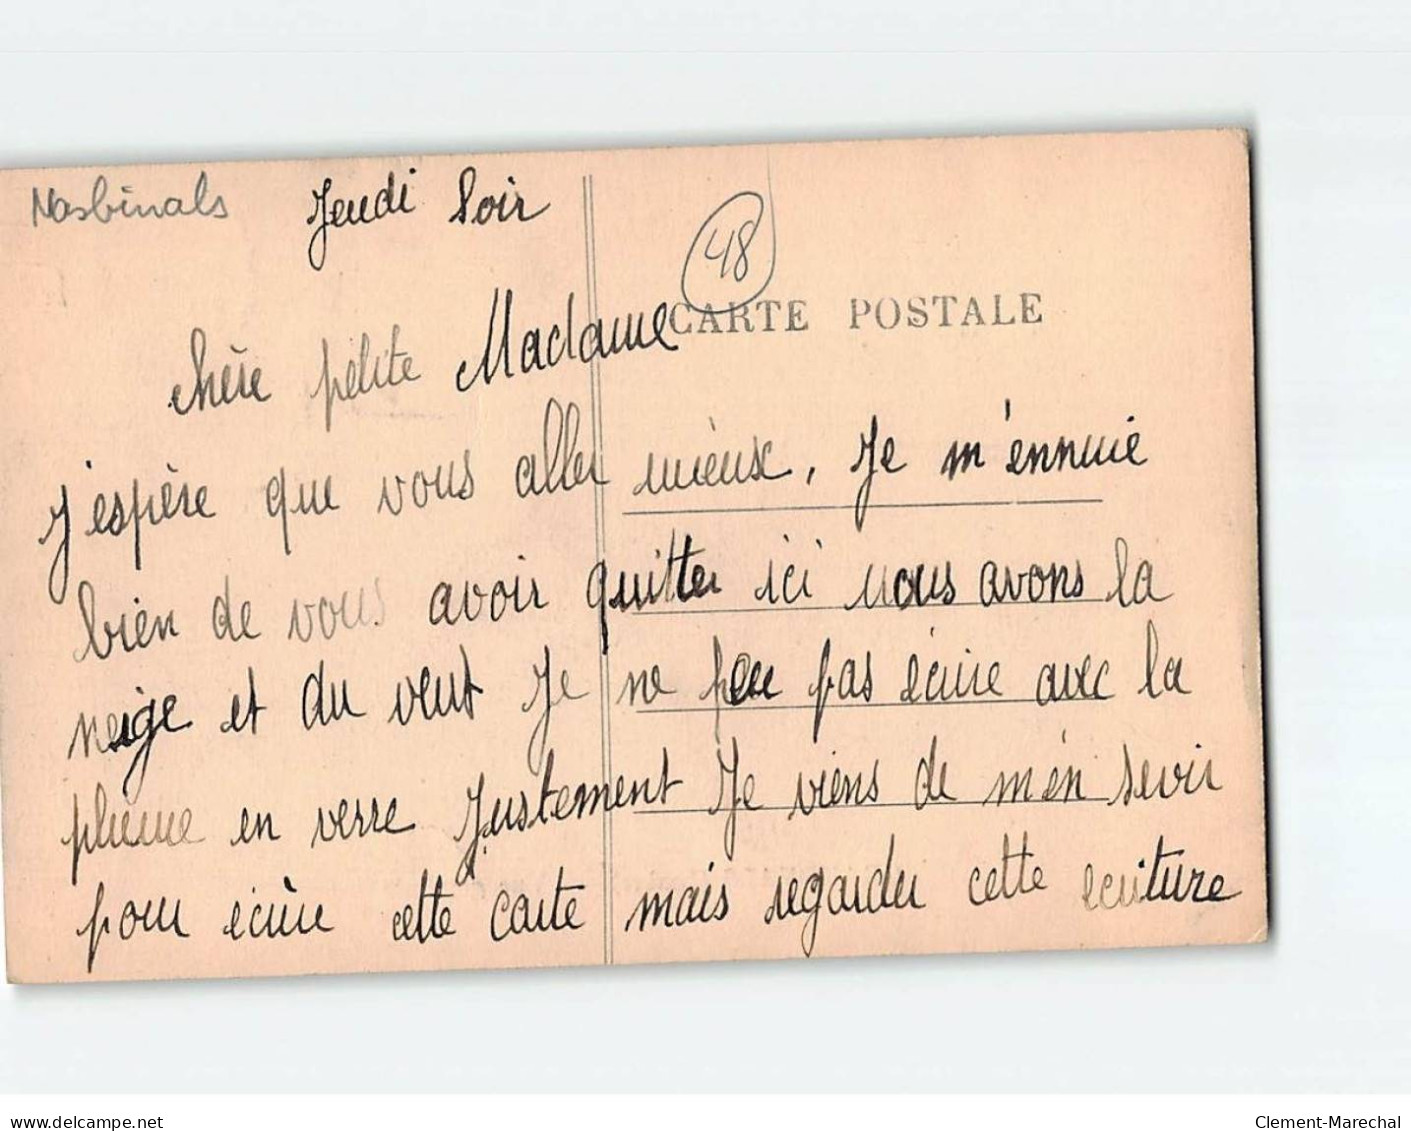 Nasbinals Jeudi Soir
48
CARTE POSTALE
chère petite Madame
J'espère que vous aller mieux, Je m'ennuie
bien de vous avoir quitter ici nous avons la
neige et du vent Je ne peu pas écrire avec la
plume en verre Justement Je viens de m'en servir
pour écrire cette carte mais regarder cette ecriture
delcampe.net
Clement-Marechal